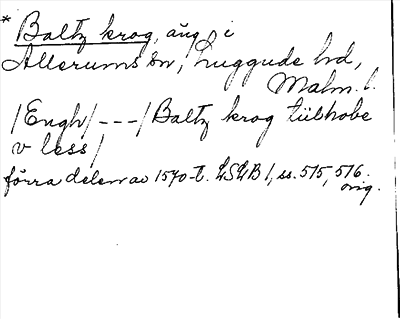 * Baltz krog, äng, i
Allerums sn, Luggude hd,
Malm. l.
/Engh/---/Baltz krog tilhobe
v less/
förra delen av 1570-t. LSLB 1, ss. 515, 516.
orig.